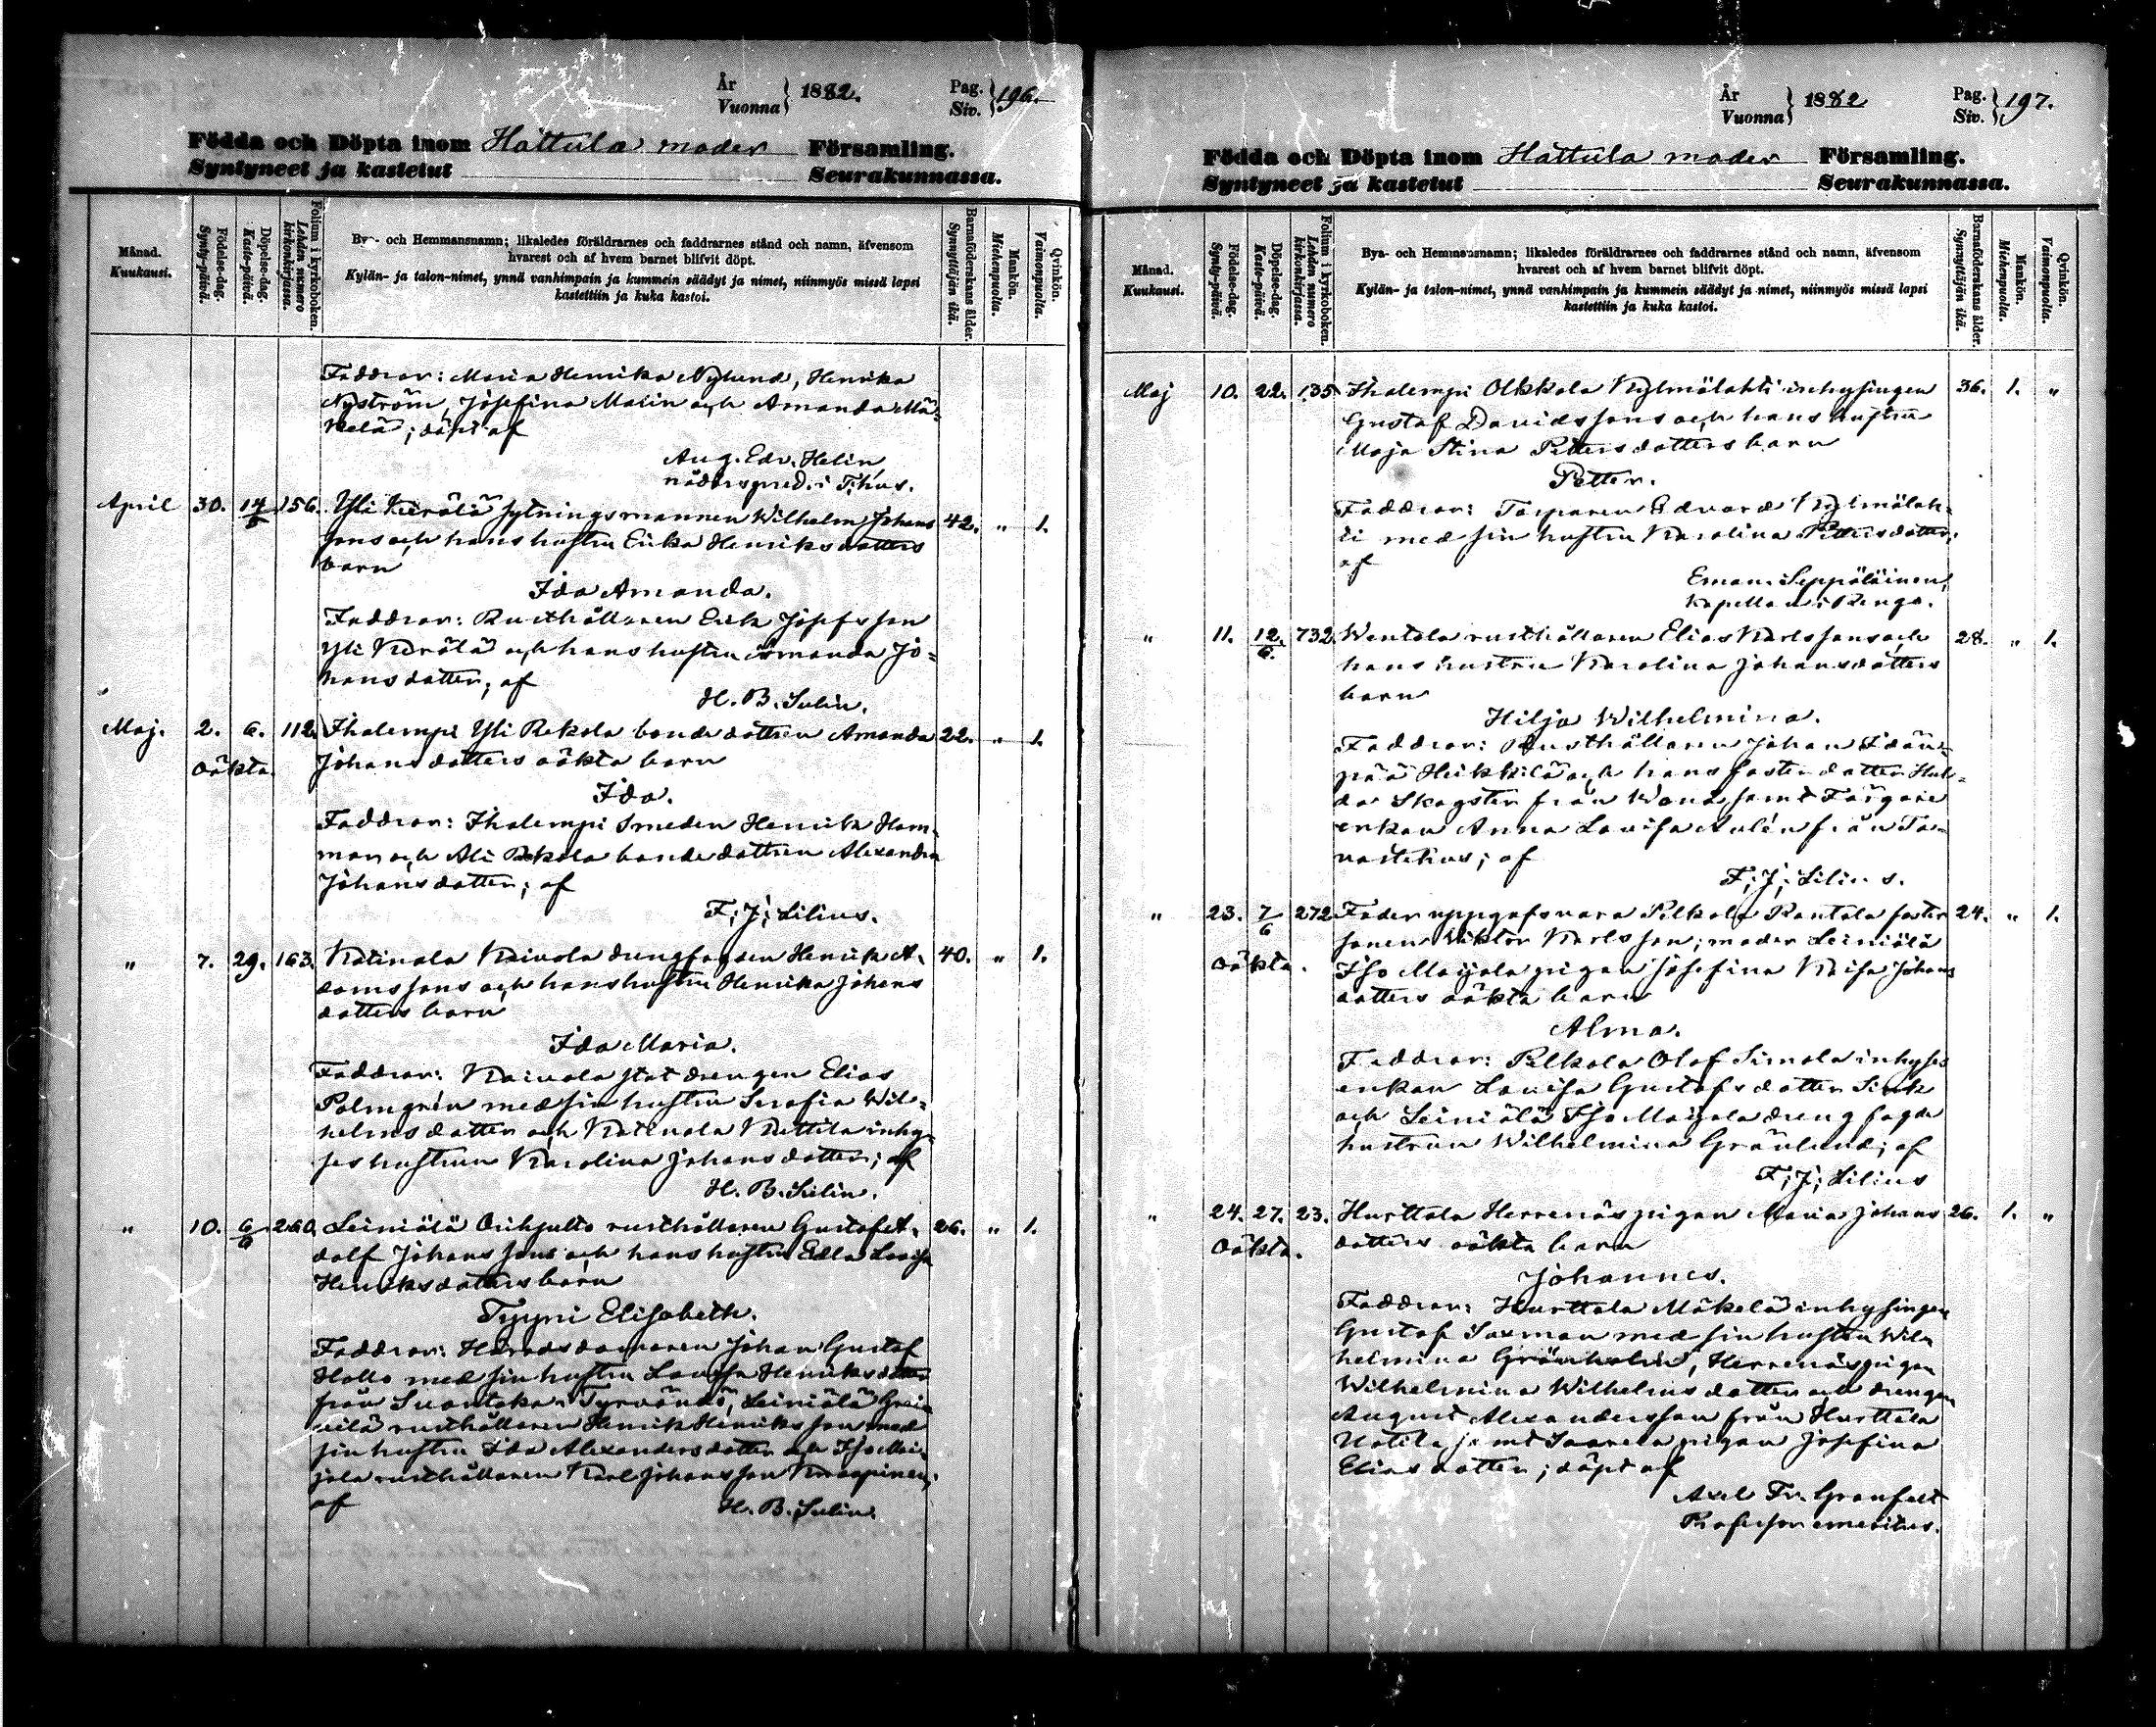 År
Vuonna } 1882.
Pag.
Siv. } 196.
Födda och Döpta inom Hattula moder Församling.
Syntyneet ja kastetut Seurakunnassa.
Månad.
Kuukausi.
Födelse-dag.
Synty-päivä.
Döpelse-dag.
Kaste-päivä.
Folium i kyrkoboken.
Lehden numero
kirkonkirjassa.
Bya- och Hemmansnamn; likaledes föräldrarnes och faddrarnes stånd och namn, äfvensom
hvarest och af hvem barnet blifvit döpt.
Kylän- ja talon-nimet, ynnä vanhimpain ja kummein säädyt ja nimet, niinmyös missä lapsi
kastettiin ja kuka kastoi.
Barnaföderskans ålder.
Synnyttäjän ikä.
Mankön.
Miehenpuolia.
Qvinkön.
Vaimonpuolia.
Faddrar: Maria Henrika Nylund, Henrika
Nyström, Josefina Malin och Amanda Mä-
kelä; döpt af
Aug. Edv. Helin,
nådårspred. i T:hus.
April 30. 14/5 156. Yli Kerälä sytningsmannen Wilhelm Johans 42. " 1.
sons och hans hustru Erika Henriksdotters
barn
Ida Amanda.
Faddrar: Rusthållaren Erik Josefsson
Yli Kerälä och hans hustru Amanda Jo-
hansdotter; af
H. B. Sulin.
Maj. 2. 6. 112. Ihalempi Yli Rekola bondedottren Amanda 22. " 1.
oäkta. Johansdotters oäkta barn
Ida.
Faddrar: Ihalempi Smeden Henrik Ham-
man och Ali Rekola bondedottren Alexandra
Johansdotter; af
F. J. Lilius.
" 7. 29. 163. Katinala Kaivola drengfogden Henrik A- 40. " 1.
damssons och hans hustru Henrika Johans
dotters barn
Ida Maria.
Faddrar: Kaivola statdrengen Elias
Palmgrén med sin hustru Serafia Wil-
helmsdotter och Katinala Kuttila inhy-
seshustrun Karolina Johansdotter; af
H. B. Sulin.
" 10. 6/6 260. Leiniälä Orihjulto rusthållaren Gustaf A- 26. " 1.
dolf Johanssons och hans hustru Edla Lovisa
Henriksdotters barn
Tyyni Elisabeth.
Faddrar: Häradsdomaren Johan Gustaf
Hollo med sin hustru Lovisa Henriksdotter
från Suontaka i Tyrväntö, Leiniälä
rusthållaren Henrik Henriksson med
sin hustru Ida Alexandersdotter och Iso Mai-
jala rusthållaren Karl Johansson Knaapinen;
af H. B. Sulin.
År
Vuonna } 1882
Pag.
Siv. } 197.
Födda och Döpta inom Hattula moder Församling.
Syntyneet ja kastetut Seurakunnassa.
Månad.
Kuukausi.
Födelse-dag.
Synty-päivä.
Döpelse-dag.
Kaste-päivä.
Folium i kyrkoboken.
Lehden numero
kirkonkirjassa.
Bya- och Hemmansnamn; likaledes föräldrarnes och faddrarnes stånd och namn, äfvensom
hvarest och af hvem barnet blifvit döpt.
Kylän- ja talon-nimet, ynnä vanhimpain ja kummein säädyt ja nimet, niinmyös missä lapsi
kastettiin ja kuka kastoi.
Barnaföderskans ålder.
Synnyttäjän ikä.
Mankön.
Miehenpuolia.
Qvinkön.
Vaimonpuolia.
Maj 10. 22. 135 Ihalempi Olkkola Kylmälahti inhysingen 36. 1. "
Gustaf Davidssons och hans hustru
Maja Stina Pettersdotters barn
Petter.
Faddrar: Torparen Edvard Kylmälah-
ti med sin hustru Karolina Pettersdotter;
af
Eman. Seppäläinen,
kapellan i Rengo.
" 11. 12/6. 732. Wentola rusthållaren Elias Karlssons och 28. " 1.
hans hustru Karolina Johansdotters
barn
Hilja Wilhelmina.
Faddrar: Rusthållaren Johan Idän-
pää Heikkilä och hans fosterdotter Hul-
da Skogster från Wana samt Färgare
enkan Anna Lovisa Aulén från Ta-
vastehus; af
F. J. Lilius.
" 23. 7/6 272. Fader uppgafs vara Pelkola Rantala foster 24. " 1.
oäkta. sonen Wiktor Karlsson; moder Leiniälä
Iso Maijala pigan Josefina Kaisa Johans
dotters oäkta barn
Alma.
Faddrar: Pelkola Olof Simola inhyses
enkan Lovisa Gustafsdotter Sink
och Leiniälä Iso Maijala drengfogde
hustrun Wilhelmina Grönlund; af
F. J. Lilius
" 24. 27. 23. Hurttala Herrenäs pigan Maria Johans 26. 1. "
oäkta. dotters oäkta barn
Johannes.
Faddrar: Hurttala Mäkelä inhysingen
Gustaf Saxman med sin hustru Wil-
helmina Grönholm, Herrenäspigan
Wilhelmina Wilhelmsdotter och drengen
August Alexandersson från Hurttala
samt Saarela pigan Josefina
Eliasdotter; döpt af
Axel Fr. Granfelt
Professor emeritus.